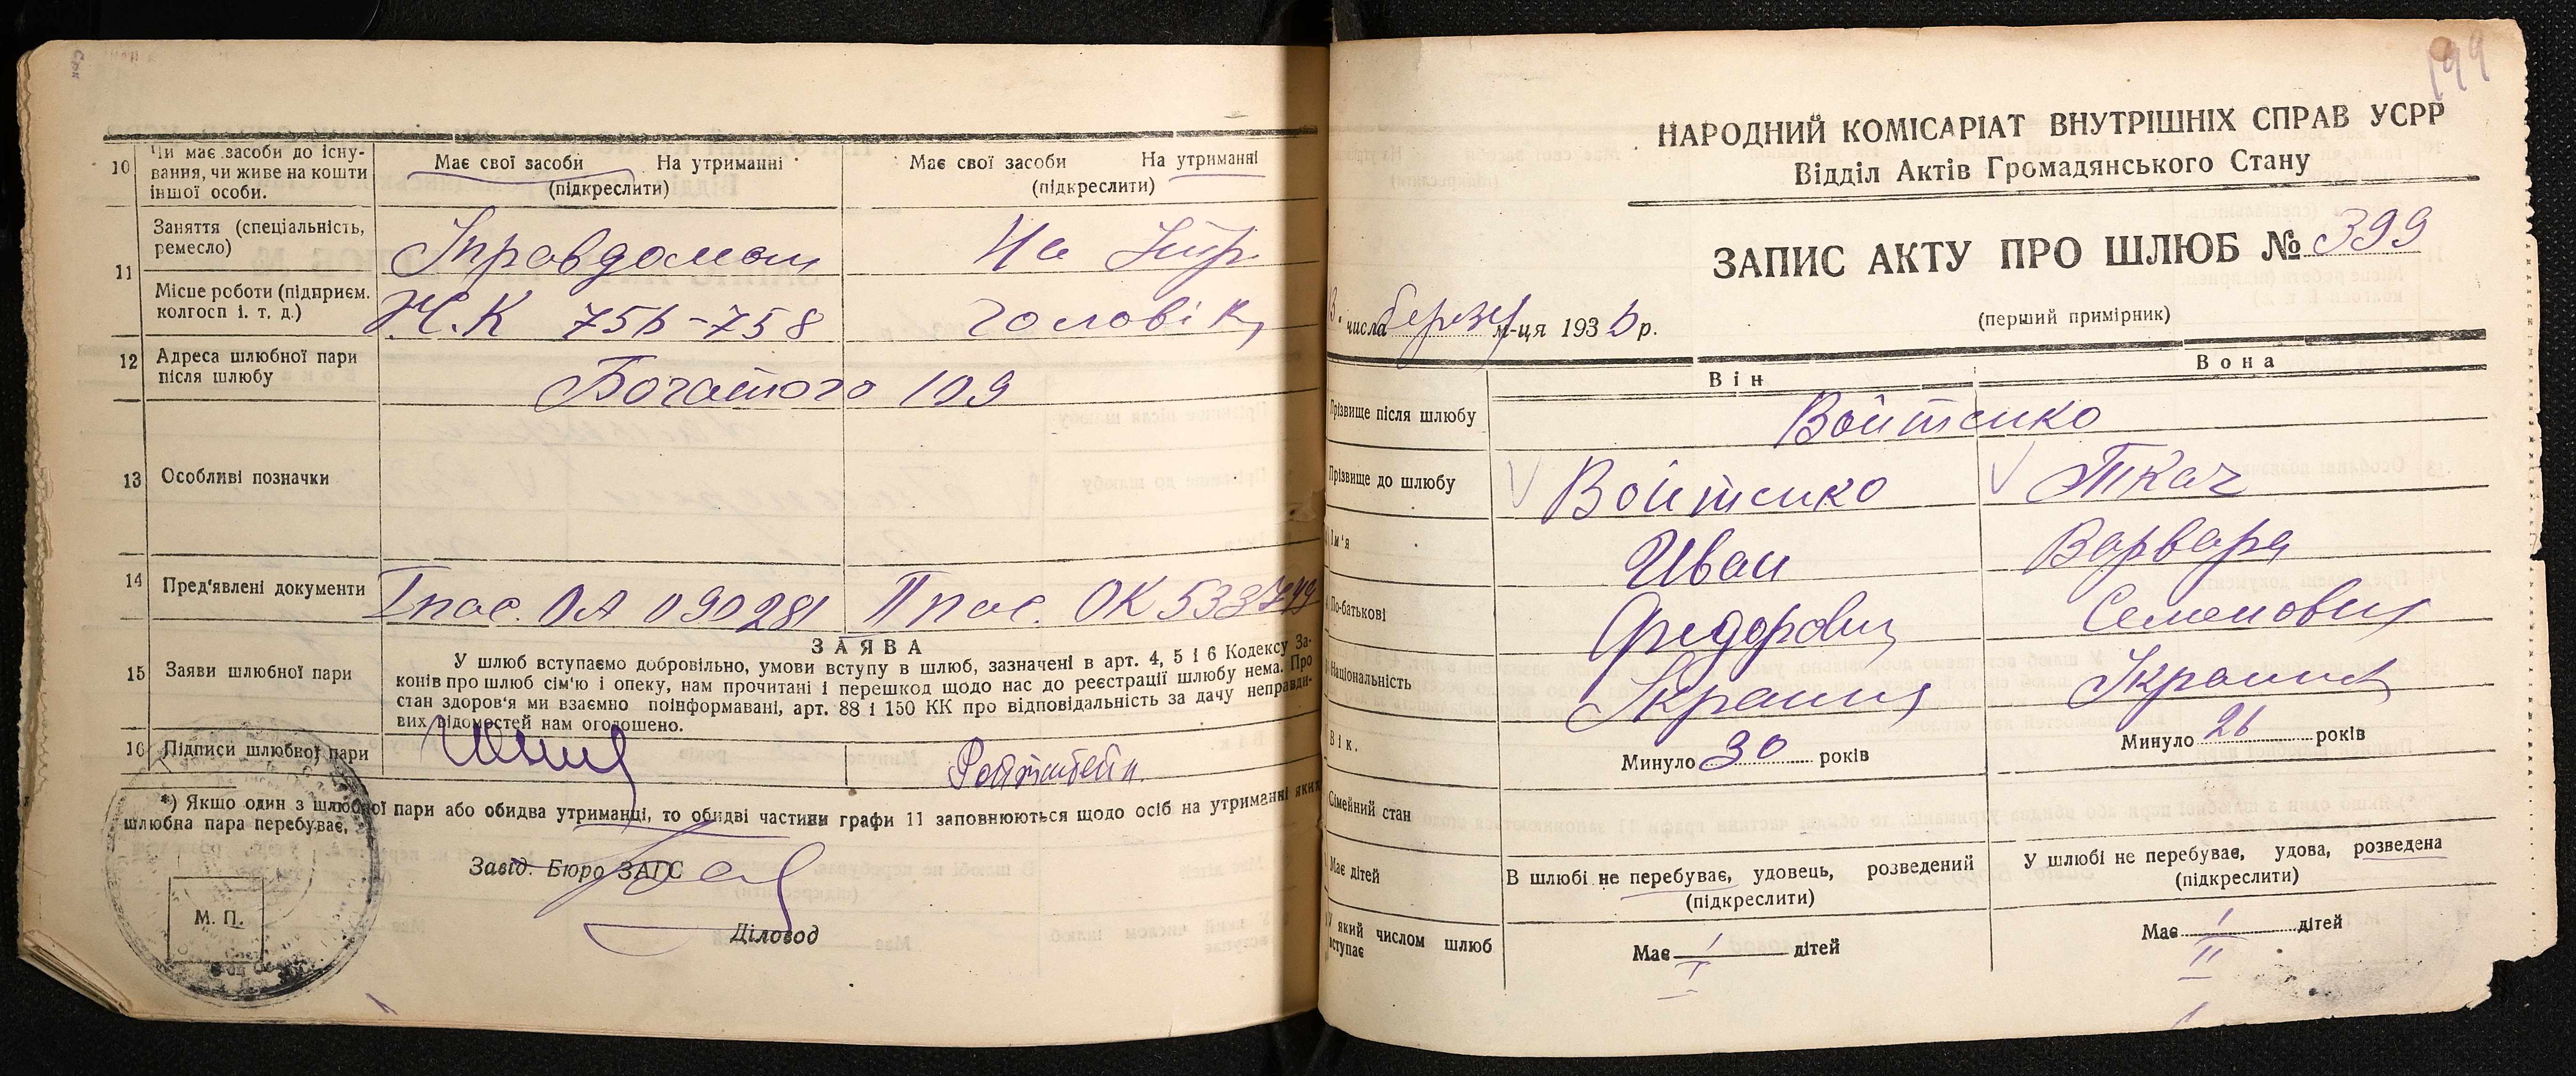 10 Чи має засоби до існу-
вання, чи живе на кошти
іншої особи.
Має свої засоби На утриманні
(підкреслити)
Має свої засоби На утриманні
(підкреслити)
11 Заняття (спеціальність,
ремесло)
Управдомом
На Утр
Місце роботи (підприєм.
колгосп і. т. д.)
756-758
головік
12 Адреса шлюбної пари
після шлюбу
Богатого 109
13 Особливі позначки
14 Пред'явлені документи
I пас. ОА 090281 II пас. ОК
15 Заяви шлюбної пари
ЗАЯВА
У шлюб вступаємо добровільно, умови вступу в шлюб, зазначені в арт. 4, 5 і 6 Кодексу За-
конів про шлюб сім'ю і опеку, нам прочитані і перешкод щодо нас до реєстрації шлюбу нема. Про
стан здоров'я ми взаємно поінформавані, арт. 88 і 150 КК про відповідальність за дачу неправди-
вих відомостей нам оголошено.
16 Підписи шлюбної пари
*) Якщо один з шлюбної пари або обидва утриманці, то обидві частини графи 11 заповнюються щодо осіб на утриманні яких
шлюбна пара перебуває,
Завід. Бюро ЗАГС
М. П.
Діловод
199
НАРОДНИЙ КОМІСАРІАТ ВНУТРІШНІХ СПРАВ УСРР
Відділ Актів Громадянського Стану
ЗАПИС АКТУ ПРО ШЛЮБ № 399
(перший примірник)
числа березня м-ця 1936 р.
Він
Вона
Прізвище після шлюбу
Войтенко
Прізвище до шлюбу
Войтенко
Ткач
Ім'я
Иван
Варвара
По-батькові
Федорович
Семенович
Національність
Украинц
Украинк
Вік.
Минуло 30 років
Минуло 26 років
Сімейний стан
В шлюбі не перебуває, удовець, розведений
(підкреслити)
У шлюбі не перебуває, удова, розведена
(підкреслити)
Має дітей
Має / дітей
Має / дітей
У який числом шлюб
вступає
I
II